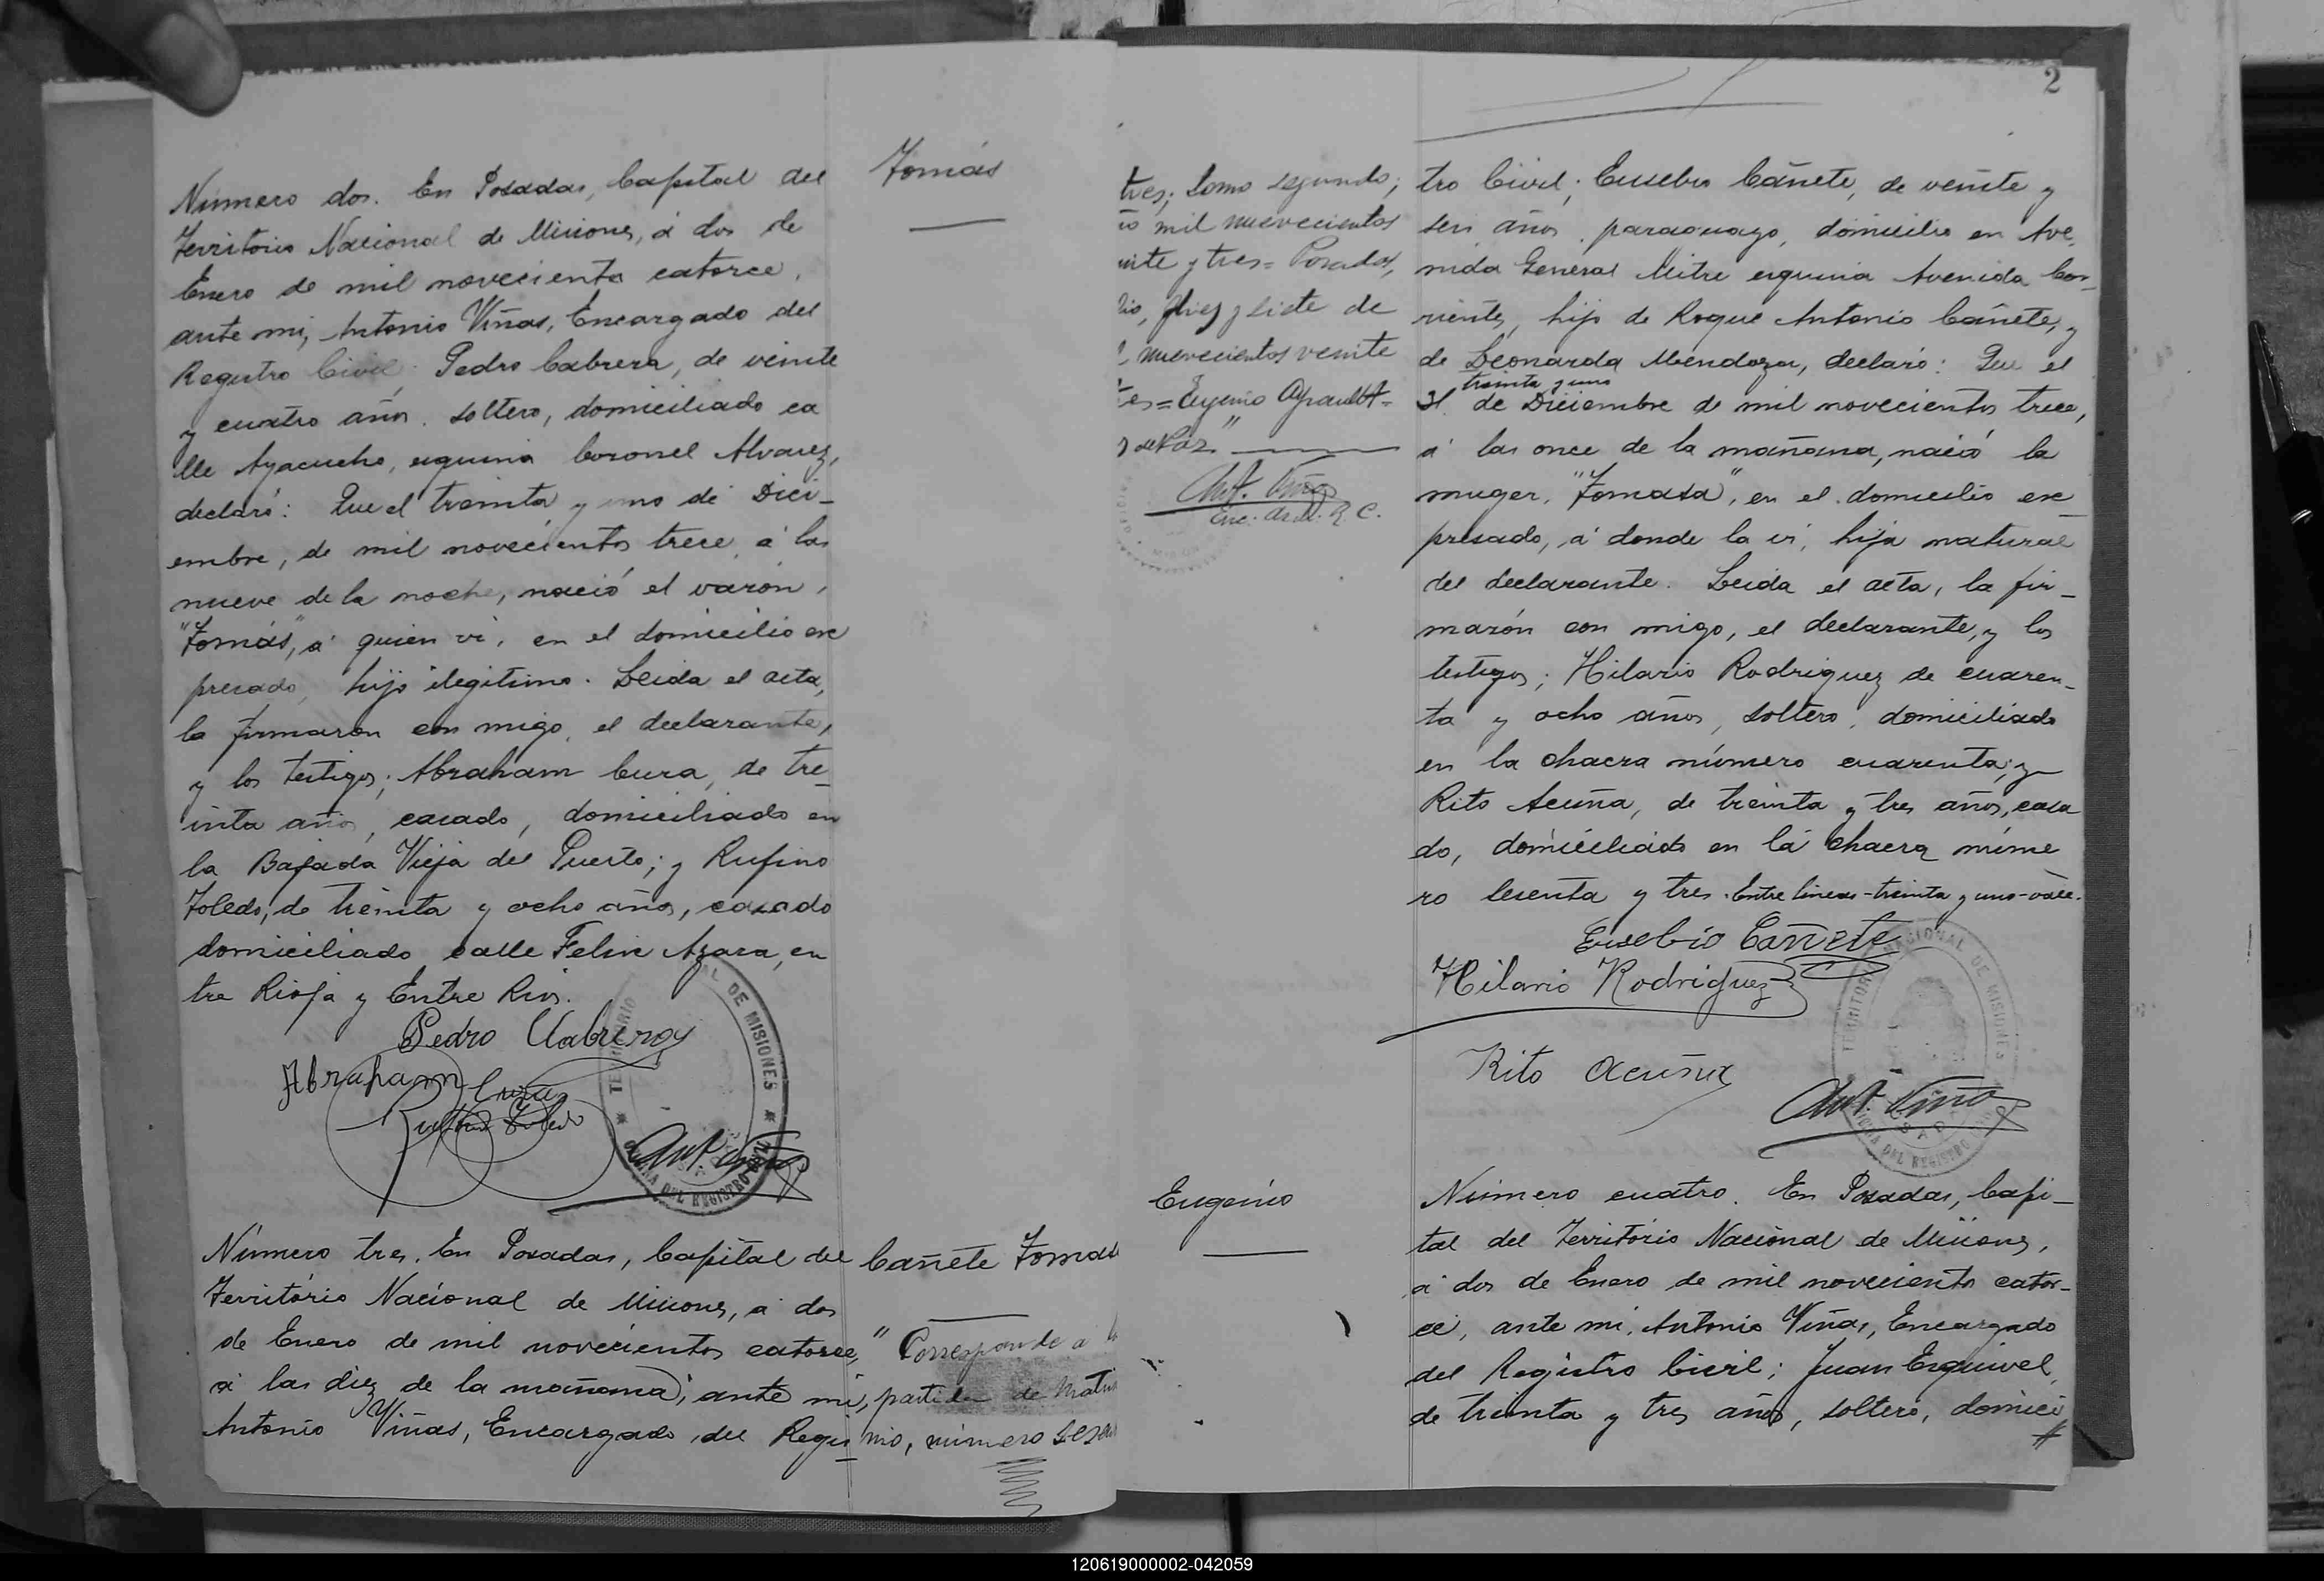 Número dos. En Posadas, Capital del
Territorio Nacional de Misiones, á dos de
Enero de mil novecientos catorce,
ante mi, Antonio Viñas, Encargado del
Registro Civil; Pedro Cabrera, de veinte
y cuatro años, soltero, domiciliado ca
lle Ayacucho, esquina Coronel Alvarez,
declaró: Que el treinta y uno de Dici-
embre, de mil novecientos trece, á las
nueve de la noche, nació el varón,
"Tomás", á quien vi, en el domicilio ex
presado, hijo ilegitimo. Leida el acta,
la firmaron con migo, el declarante,
y los testigos; Abraham Cura, de tre-
inta años, casado, domiciliado en
la Bajada Vieja del Puerto; y Rufino
Toledo, de treinta y ocho años, casado
domiciliado calle Felix Azara, en
tre Rioja y Entre Rios.
Pedro Cabrera
Abraham Cura
Rufino Toledo
Ant. Viñas
TERRITORIO NACIONAL DE MISIONES
OFICINA DEL REGISTRO CIVIL
Tomás
Número tres. En Posadas, Capital del
Territorio Nacional de Misiones, á dos
de Enero de mil novecientos catorce,
á las diez de la mañana; ante mi,
Antonio Viñas, Encargado del Regis-
Cañete Tomas
"Corresponde a
partida de Matri
nio, número sesen
2
tres; tomo segundo;
ño mil nuevecientos
inte y tres = Posadas,
lio, diez y siete de
l nuevecientos veinte
es = Eugenio
de Paz"
Ant. Viñas
Enc. R. C.
tro Civil; Eusebio Cañete, de veinte y
seis años, paraguayo, domicilio en Ave
nida General Mitre esquina Avenida Cor-
rientes, hijo de Roque Antonio Cañete, y
de Leonarda Mendoza, declaró: Que el
treinta y uno
31 de Diciembre de mil novecientos trece,
á las once de la mañana, nació la
muger, "Tomasa", en el domicilio ex-
presado, á donde la vi, hija natural
del declarante. Leida el acta, la fir-
marón con migo, el declarante, y los
testigos; Hilario Rodriguez de cuaren-
ta y ocho años, soltero, domiciliado
en la chacra número cuarenta; y
Rito Acuña, de treinta y tres años, casa
do, domiciliado en la chacra núme
ro sesenta y tres. Entre lineas - treinta y uno - vale.
Eusebio Cañete
Hilario Rodriguez
Rito Acuña
Ant. Viñas
TERRITORIO NACIONAL DE MISIONES
OFICINA DEL REGISTRO
Eugenio
Número cuatro. En Posadas, Capi-
tal del Territorio Nacional de Misiones,
á dos de Enero de mil novecientos cator-
ce, ante mi, Antonio Viñas, Encargado
del Registro Civil; Juan Esquivel,
de treinta y tres años, soltero, domici
120619000002-042059